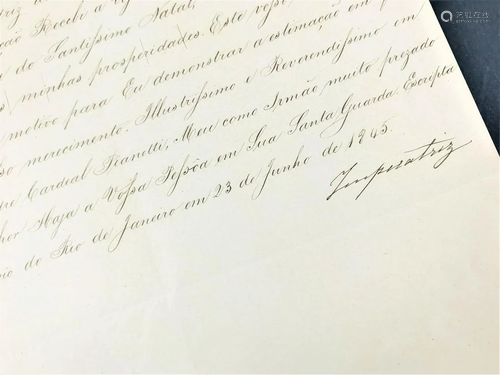 do Santíssimo Natal,
minhas prosperidades. Este vosso
motivo para Eu demonstrar a estimação em q
merecimento. Illustrissimo e Reverendissimo em
Cardeal Franelli, Meu como Irmão muito prezado
Haja a Vossa Pessôa em Sua Santa Guarda. Escripta
do Rio de Janeiro em 23 de Junho de 1845.
Imperatriz